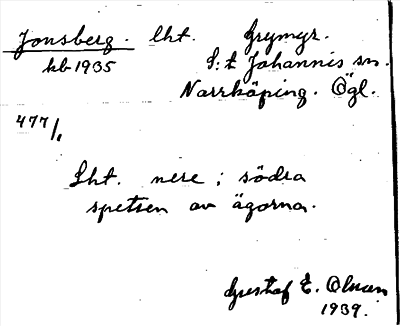 Jonsberg. lht. Grymyr.
kb 1935 S:t Johannis sn.
Norrköping. Ögl.
477/1
Lht. nere i södra
spetsen av ägorna.
Gustaf E. Olman
1939.